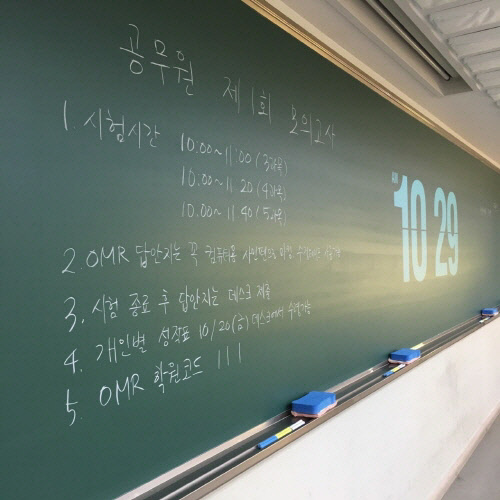 공무원 제1회 모의고사
1. 시험시간 10:00~11:00 (3과목)
10:00~11:20 (4과목)
10:00~11:40 (5과목)
2. OMR 답안지는 꼭 컴퓨터용 사인펜으로 마킹
3. 시험 종료 후 답안지는 데스크 제출
4. 개인별 성적표 10/20(금) 데스크에서 수령가능
5. OMR 학원코드 111
AM
10 29